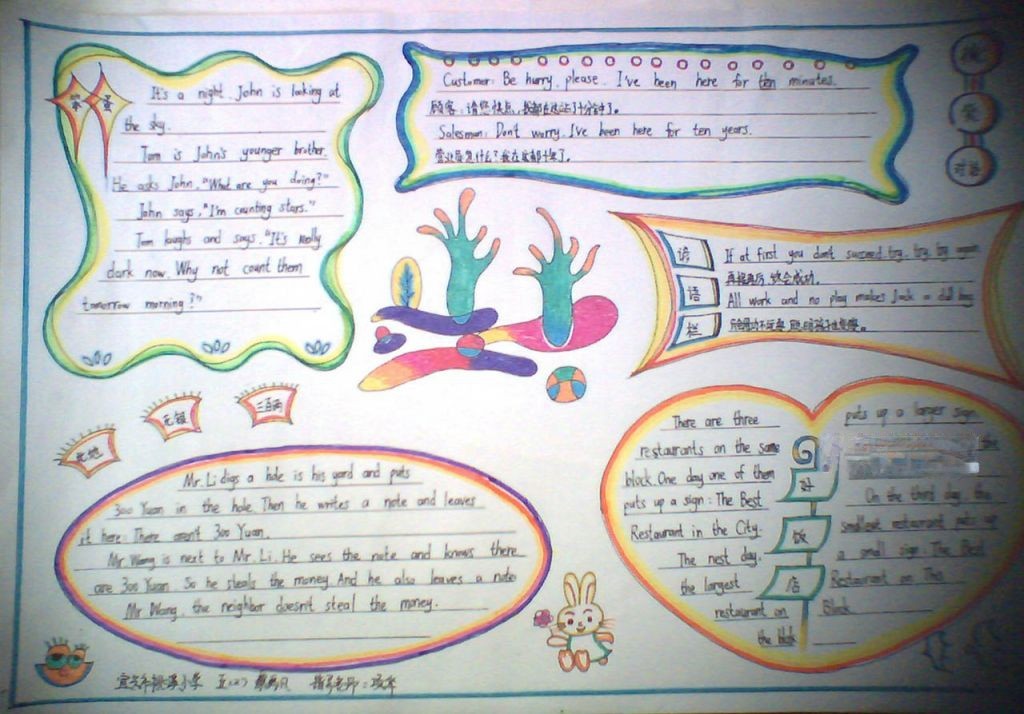 It's a night. John is looking at
the sky.
Tom is John's younger brother.
He asks John, "What are you doing?"
John says, "I'm counting stars."
Tom laughs and says, "It's really
dark now. Why not count them
tomorrow morning?"
Customer: Be hurry, please. I've been here for ten minutes.
顾客:请您快点,我都在这近了十分钟了。
Salesman: Don't worry. I've been here for ten years.
营业员急什么?我在这都十年了。
对话
谚
语
栏
If at first you don't succeed try, try, try again
再接再厉,终会成功。
All work and no play makes Jack a dull boy.
此地
无银
三百两
Mr. Li digs a hole is his yard and puts
300 Yuan in the hole. Then he writes a note and leaves
it here: There aren't 300 Yuan.
Mr Wang is next to Mr. Li. He sees the note and knows there
are 300 Yuan. So he steals the money. And he also leaves a note
Mr Wang, the neighbor doesn't steal the money.
There are three
restaurants on the same
block. One day one of them
puts up a sign: The Best
Restaurant in the City.
The nest day,
the largest
restaurant on
the block
好
饭
店
puts up a larger sign
the
On the third day, the
smallest restaurant puts up
a small sign: The Best
Restaurant on This
Block.
小学